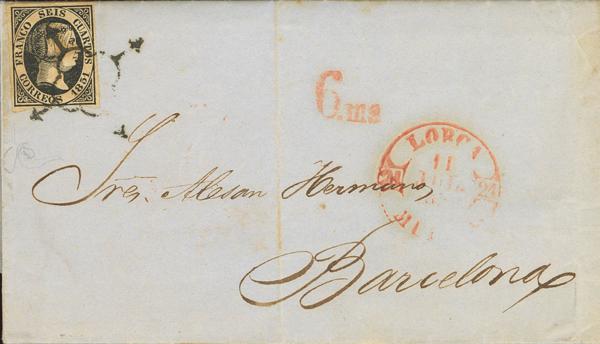 FRANCO SEIS CUARTOS
CORREOS 1851
6.ms
LORCA
11
JUL
24 24
Sres. Alesan Hermano,
Barcelona